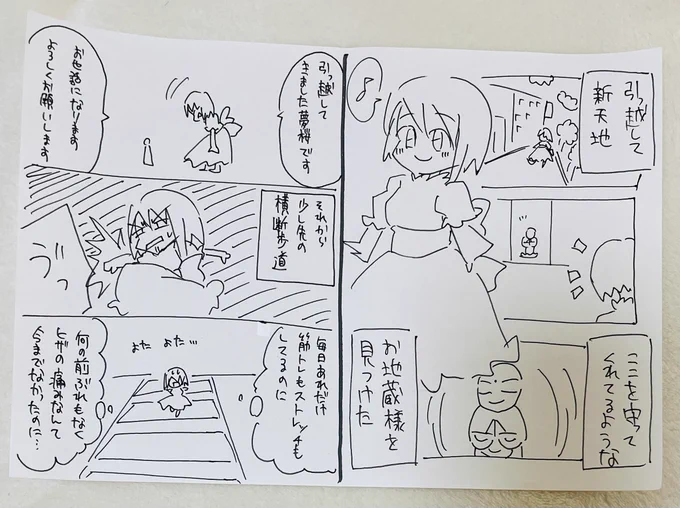 引っ越して
新天地
♪
ここを守って
くれてるような
お地蔵様を
見つけた
引っ越して
きました夢桜です
お世話になります
よろしくお願いします
それから
少し先の
横断歩道
うっ
毎日あれだけ
筋トレもストレッチも
してるのに
よた よた…
何の前ぶれもなく
ヒザの痛みなんて
今までなかったのに…